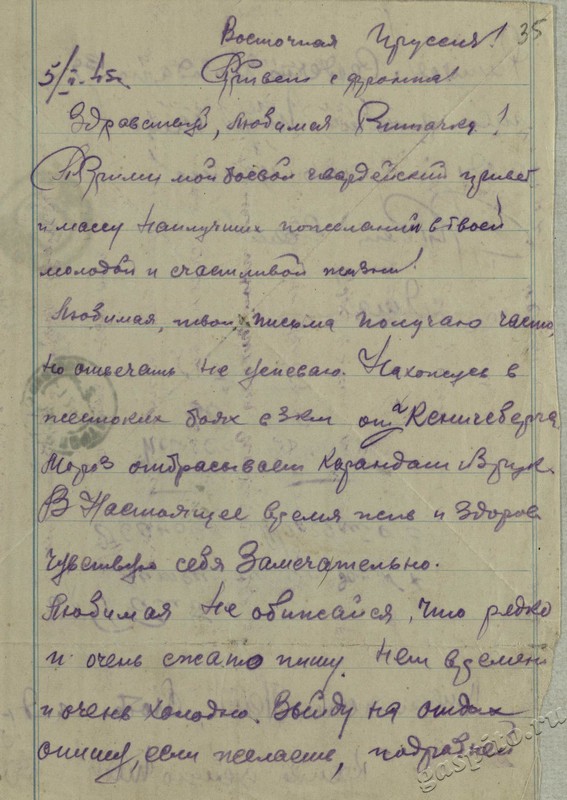 35
Восточная Пруссия!
5/II.45г. Привет с фронта!
Здравствуй, любимая Риточка!
Прими мой боевой гвардейский привет
и массу наилучших пожеланий в твоей
молодой и счастливой жизни!
Любимая, твои письма получаю часто,
но отвечать не успеваю. Нахожусь в
жестоких боях в 3км от г Кенигсберга
Мороз отбрасывает карандаш
В Настоящее время жив и здоров
чувствую себя Замечательно.
Любимая не обижайся, что редко
и очень сжато пишу. Нет времени
и очень холодно. Выйду на отдых
опишу, если желаешь, подробней
gaspito.ru